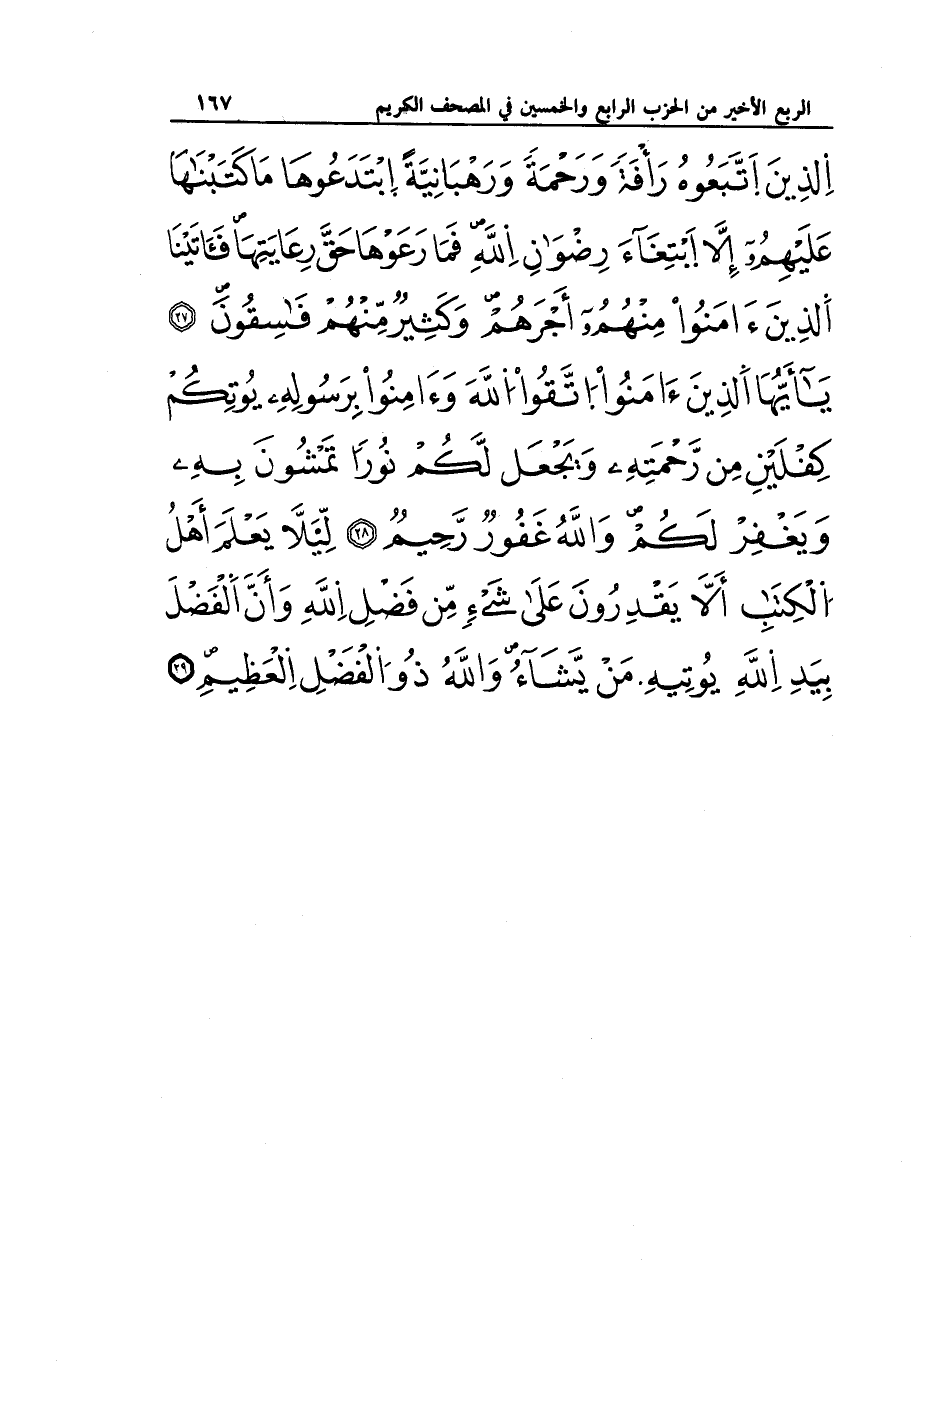 الربع الأخير من الحزب الرابع والخمسين في المصحف الكريم ١٦٧
اِلذِينَ اَتَّبَعُوهُ رَأْفَةً وَرَحْمَةً وَرَهْبَانِيَّةً اِبْتَدَعُوهَا مَا كَتَبْنَٰهَا
عَلَيْهِمُۥٓ إِلَّا اَبْتِغَآءَ رِضْوَٰنِ اِللَّهِ فَمَا رَعَوْهَا حَقَّ رِعَايَتِهَا فَـَٔاتَيْنَا
اَلذِينَ ءَامَنُواْ مِنْهُمُۥٓ أَجْرَهُمْ وَكَثِيرٌ مِّنْهُمْ فَٰسِقُونَ ٢٧
يَٰٓأَيُّهَا اَلذِينَ ءَامَنُواْ اُ۪تَّقُواْ اُللَّهَ وَءَامِنُواْ بِرَسُولِهِۦ يُوتِكُمْ
كِفْلَيْنِ مِن رَّحْمَتِهِۦ وَيَجْعَل لَّكُمْ نُورًا تَمْشُونَ بِهِۦ
وَيَغْفِرْ لَكُمْ وَاللَّهُ غَفُورٌ رَّحِيمٌ ٢٨ لِّيَلَّا يَعْلَمَ أَهْلُ
اُلْكِتَٰبِ أَلَّا يَقْدِرُونَ عَلَىٰ شَےْءٍ مِّن فَضْلِ اِللَّهِ وَأَنَّ اَلْفَضْلَ
بِيَدِ اِللَّهِ يُوتِيهِ مَنْ يَّشَآءُ وَاللَّهُ ذُو اُلْفَضْلِ اِلْعَظِيمِ ٢٩